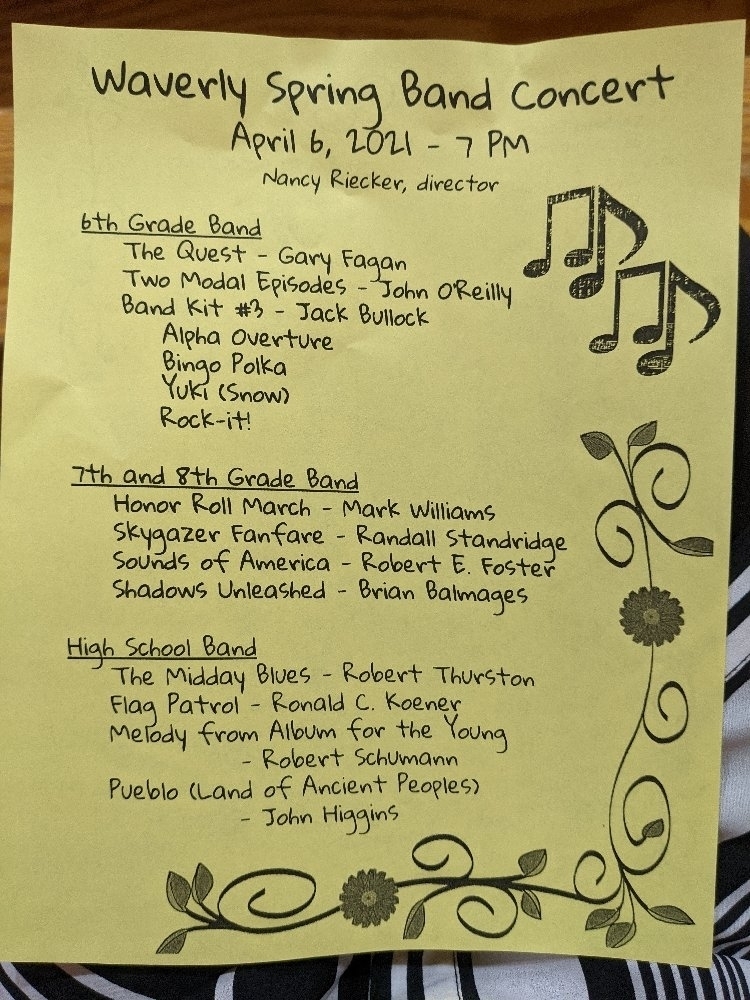 Waverly Spring Band Concert
April 6, 2021 - 7 PM
Nancy Riecker, director
6th Grade Band
The Quest - Gary Fagan
Two Modal Episodes - John O'Reilly
Band Kit #3 - Jack Bullock
Alpha Overture
Bingo Polka
Yuki (Snow)
Rock-it!
7th and 8th Grade Band
Honor Roll March - Mark Williams
Skygazer Fanfare - Randall Standridge
Sounds of America - Robert E. Foster
Shadows Unleashed - Brian Balmages
High School Band
The Midday Blues - Robert Thurston
Flag Patrol - Ronald C. Koener
Melody from Album for the Young
- Robert Schumann
Pueblo (Land of Ancient Peoples)
- John Higgins